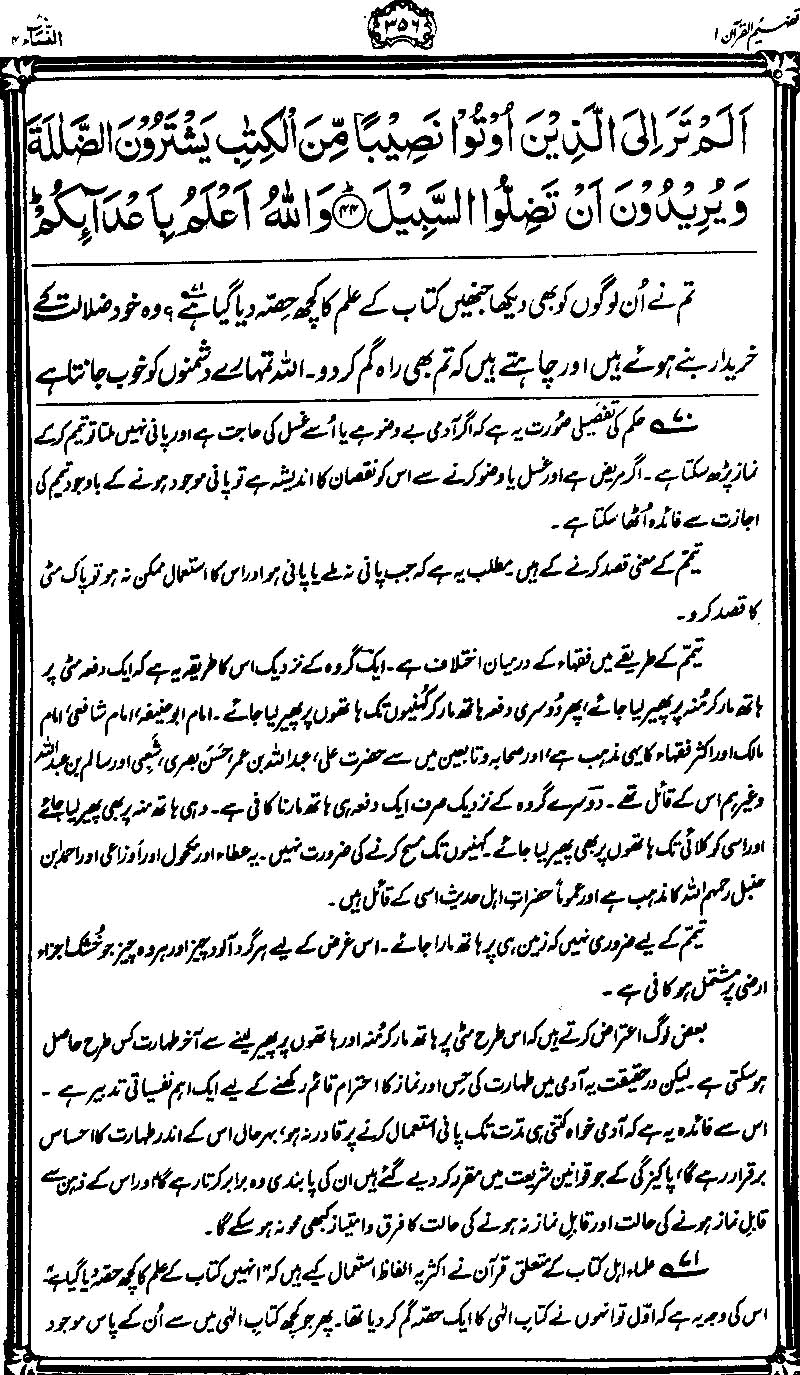 تفہیم القرآن ۱
۳۵۶
النساء ۴
اَلَمْ تَرَ اِلَى الَّذِيْنَ اُوْتُوْا نَصِيْبًا مِّنَ الْكِتٰبِ يَشْتَرُوْنَ الضَّلٰلَةَ
وَيُرِيْدُوْنَ اَنْ تَضِلُّوا السَّبِيْلَ ﴿۴۴﴾ وَاللّٰهُ اَعْلَمُ بِاَعْدَآئِكُمْ ؕ
تم نے اُن لوگوں کو بھی دیکھا جنھیں کتاب کے علم کا کچھ حِصّہ دیا گیا ہے۷۱؟ وہ خود ضلالت کے
خریدار بنے ہوئے ہیں اور چاہتے ہیں کہ تم بھی راہ گم کر دو۔ اللہ تمہارے دشمنوں کو خوب جانتا ہے
۷۰؎ حکم کی تفصیلی صُورت یہ ہے کہ اگر آدمی بے وضو ہے یا اُسے غسل کی حاجت ہے اور پانی نہیں ملتا تو تیمم کر کے
نماز پڑھ سکتا ہے۔ اگر مریض ہے اور غسل یا وضو کرنے سے اس کو نقصان کا اندیشہ ہے تو پانی موجود ہونے کے باوجود تیمم کی
اجازت سے فائدہ اُٹھا سکتا ہے۔
تیمّم کے معنی قصد کرنے کے ہیں۔ مطلب یہ ہے کہ جب پانی نہ ملے یا پانی ہو اور اس کا استعمال ممکن نہ ہو تو پاک مٹی
کا قصد کرو۔
تیمّم کے طریقے میں فقہاء کے درمیان اختلاف ہے۔ ایک گروہ کے نزدیک اس کا طریقہ یہ ہے کہ ایک دفعہ مٹی پر
ہاتھ مار کر مُنہ پر پھیر لیا جائے، پھر دُوسری دفعہ ہاتھ مار کر کُہنیوں تک ہاتھوں پر پھیر لیا جائے۔ امام ابو حنیفہؒ، امام شافعیؒ، امام
مالک اور اکثر فقہاء کا یہی مذہب ہے، اور صحابہ و تابعین میں سے حضرت علی، عبداللہ بن عمر، حَسَن بصری، شَعبِی اور سالم بن عبداللہ
وغیرہم اس کے قائل تھے۔ دوسرے گروہ کے نزدیک صرف ایک دفعہ ہی ہاتھ مارنا کافی ہے۔ وہی ہاتھ منہ پر بھی پھیر لیا جائے
اور اسی کو کلائی تک ہاتھوں پر بھی پھیر لیا جائے۔ کہنیوں تک مسح کرنے کی ضرورت نہیں۔ یہ عطاء اور مکحول اور اوزاعی اور احمد ابن
حنبل رحمہم اللہ کا مذہب ہے اور عموماً حضراتِ اہل حدیث اسی کے قائل ہیں۔
تیمّم کے لیے ضروری نہیں کہ زمین ہی پر ہاتھ مارا جائے۔ اس غرض کے لیے ہر گرد آلود چیز اور ہر وہ چیز جو خُشک اجزاء
ارضی پر مشتمل ہو کافی ہے۔
بعض لوگ اعتراض کرتے ہیں کہ اس طرح مٹی پر ہاتھ مار کر مُنہ اور ہاتھوں پر پھیر لینے سے آخر طہارت کس طرح حاصل
ہو سکتی ہے۔ لیکن درحقیقت یہ آدمی میں طہارت کی حِس اور نماز کا احترام قائم رکھنے کے لیے ایک اہم نفسیاتی تدبیر ہے۔
اس سے فائدہ یہ ہے کہ آدمی خواہ کتنی ہی مدّت تک پانی استعمال کرنے پر قادر نہ ہو، بہرحال اس کے اندر طہارت کا احساس
برقرار رہے گا، پاکیزگی کے جو قوانین شریعت میں مقرر کر دیے گئے ہیں ان کی پابندی وہ برابر کرتا رہے گا، اور اس کے ذہن سے
قابلِ نماز ہونے کی حالت اور قابلِ نماز نہ ہونے کی حالت کا فرق و امتیاز کبھی محو نہ ہو سکے گا۔
۷۱؎ علماء اہل کتاب کے متعلق قرآن نے اکثر یہ الفاظ استعمال کیے ہیں کہ "انہیں کتاب کے علم کا کچھ حصّہ دیا گیا ہے"
اس کی وجہ یہ ہے کہ اوّل تو انہوں نے کتابِ الٰہی کا ایک حصّہ گم کر دیا تھا۔ پھر جو کچھ کتابِ الٰہی میں سے اُن کے پاس موجود